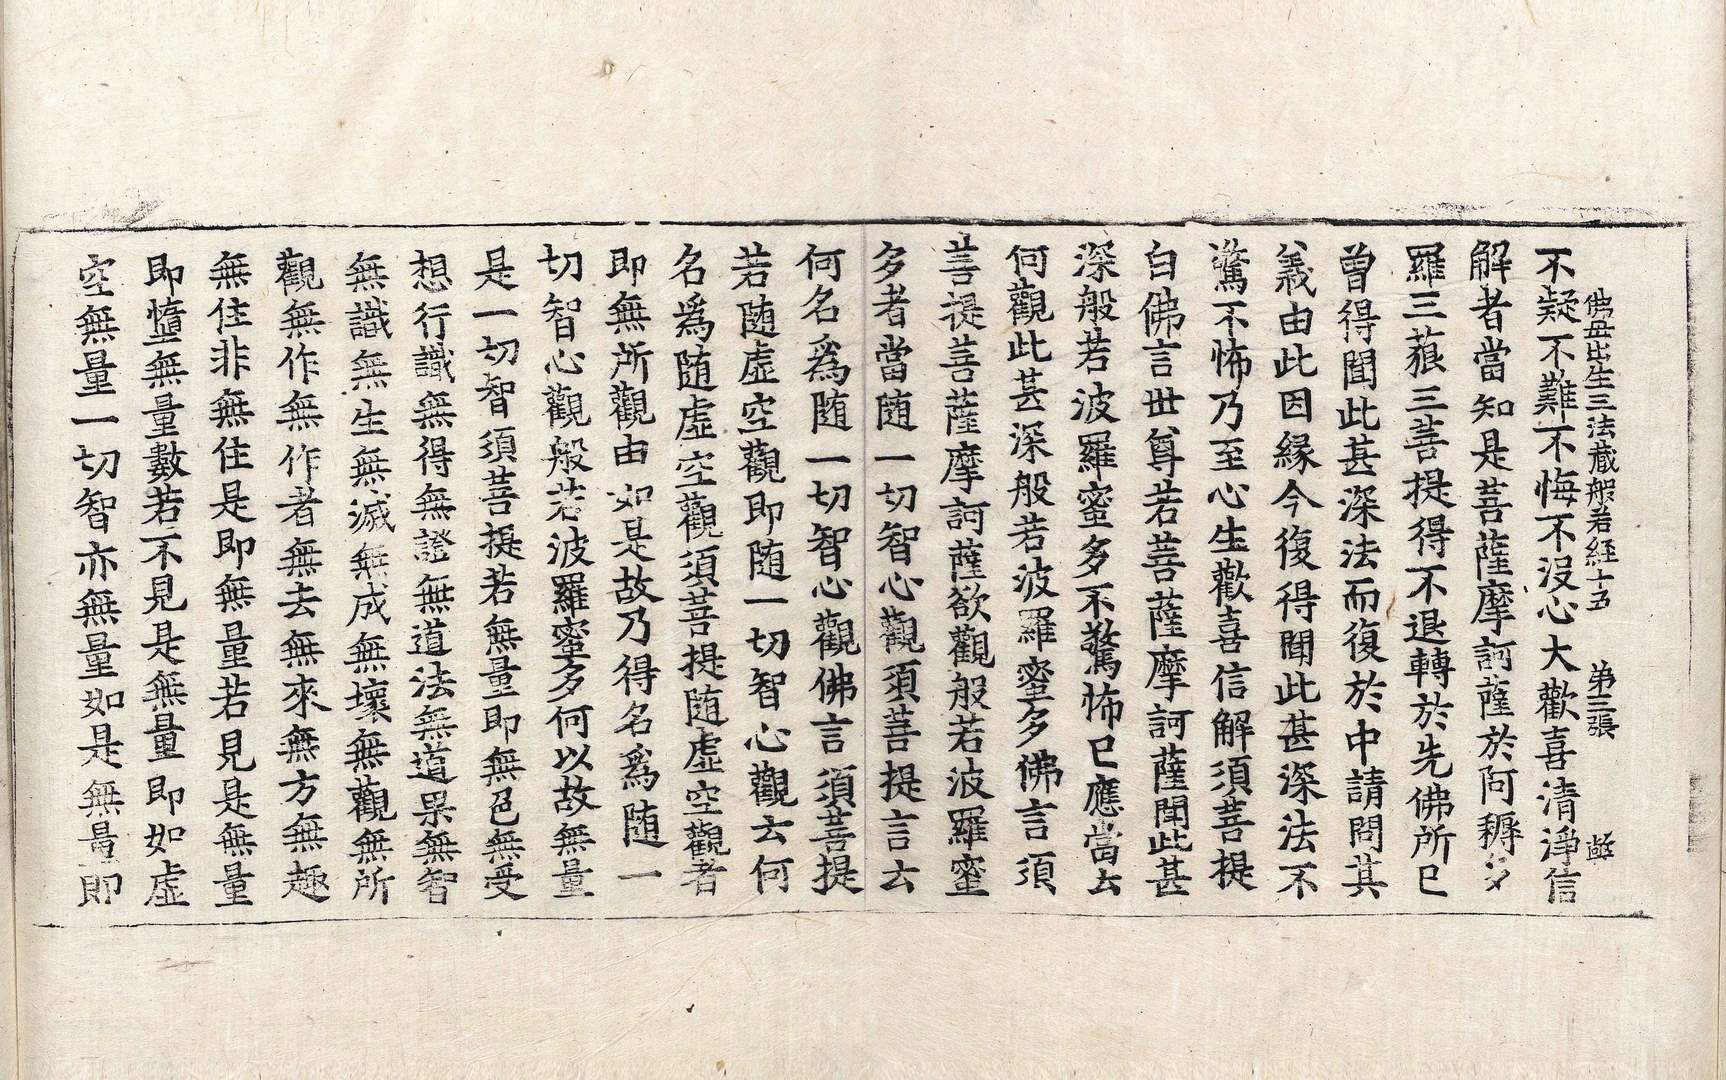 佛母出生三法藏般若經十五　第三張
不疑不難不悔不沒心大歡喜清淨信
解者當知是菩薩摩訶薩於阿耨多
羅三藐三菩提得不退轉於先佛所已
曾得聞此甚深法而復於中請問其
義由此因緣今復得聞此甚深法不
驚不怖乃至心生歡喜信解須菩提
白佛言世尊若菩薩摩訶薩聞此甚
深般若波羅蜜多不驚怖已應當云
何觀此甚深般若波羅蜜多佛言須
菩提菩薩摩訶薩欲觀般若波羅蜜
多者當隨一切智心觀須菩提言云
何名爲随一切智心觀佛言須菩提
若随虛空觀即随一切智心觀云何
名爲随虛空觀須菩提随虛空觀者
即無所觀由如是故乃得名爲随一
切智心觀般若波羅蜜多何以故無量
是一切智須菩提若無量即無色無受
想行識無得無證無道法無道果無智
無識無生無滅無成無壞無觀無所
觀無作無作者無去無來無方無趣
無住非無住是即無量若見是無量
即墮無量數若不見是無量即如虛
空無量一切智亦無量如是無量即